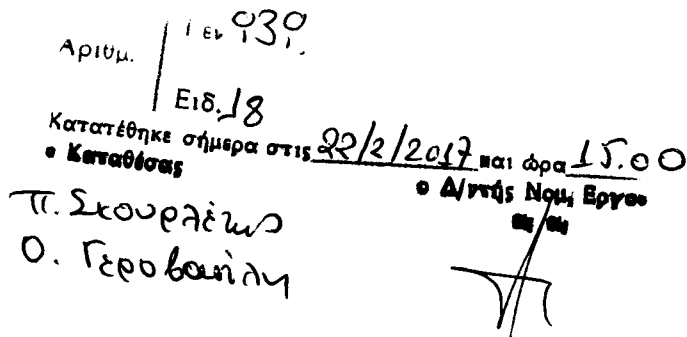 Αριθμ.
Γεν 939
Ειδ. 18
Κατατέθηκε σήμερα στις 22/2/2017 και ώρα 15.00
ο Καταθέσας
ο Δ/ντής Νομ. Εργου
Π. Σκουρλέτης
Ο. Γεροβασίλη